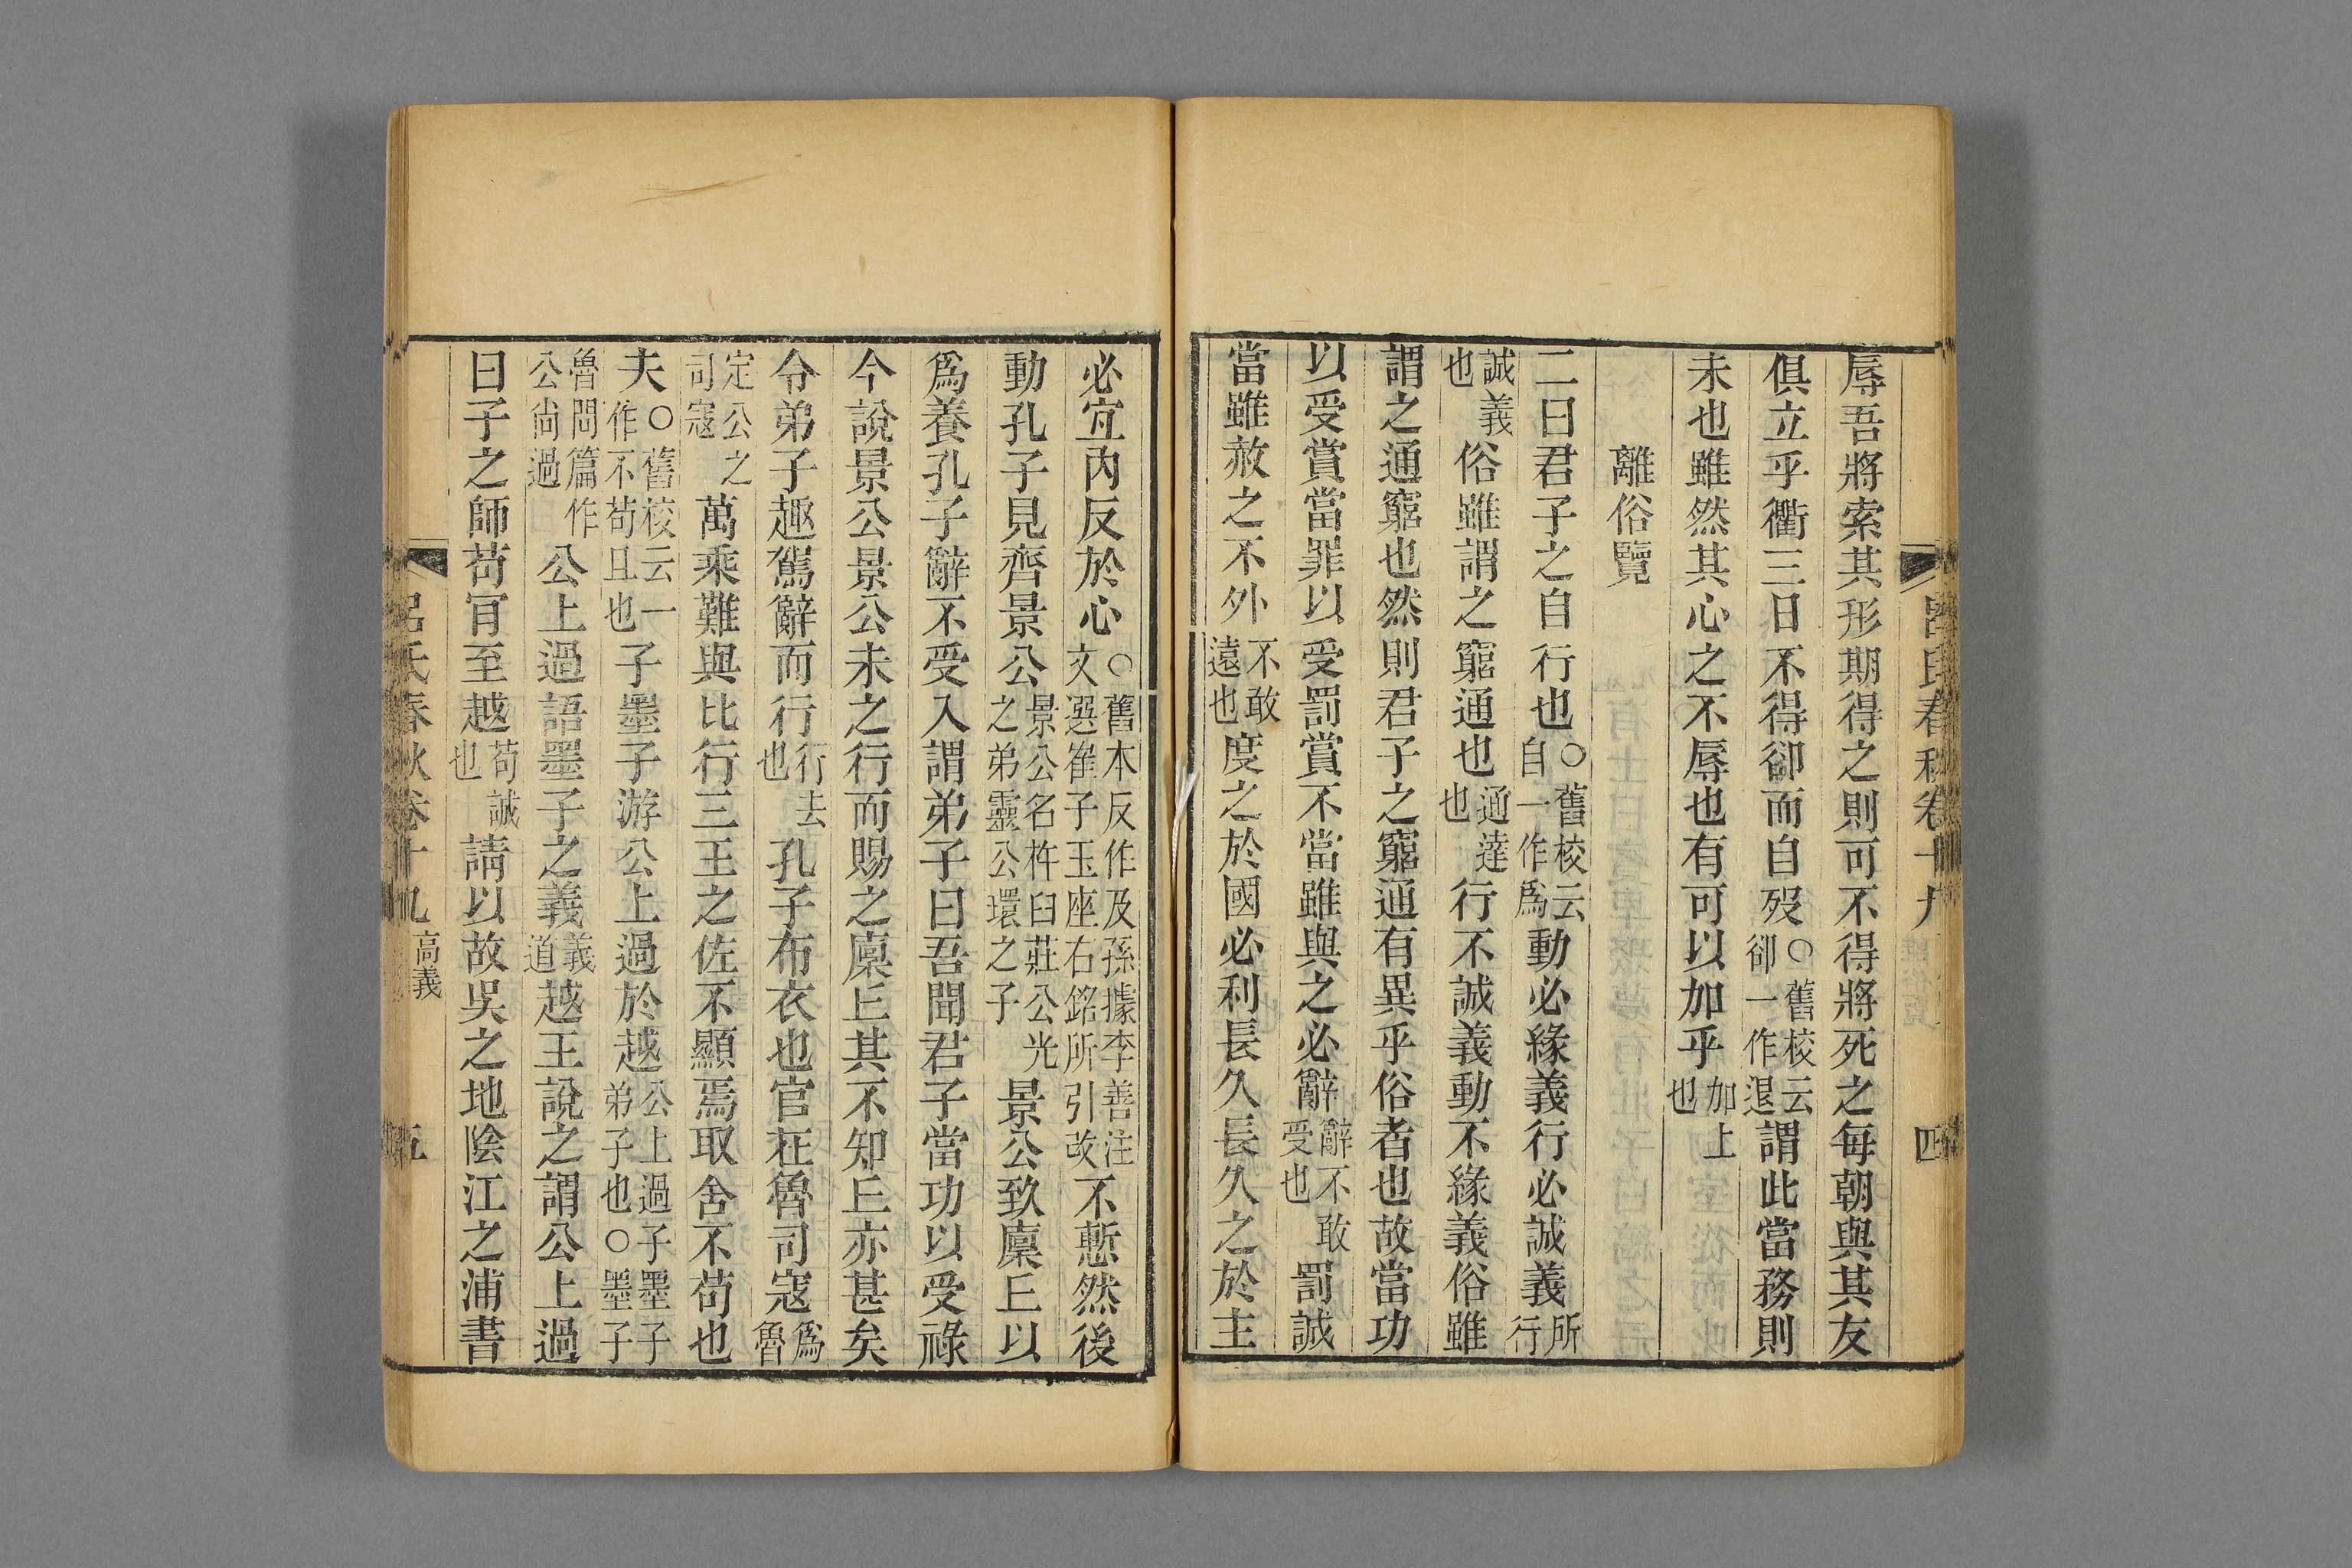 呂氏春秋卷十九　四
辱吾將索其形期得之則可不得將死之每朝與其友
俱立乎衢三日不得卻而自歿○舊校云卻一作退謂此當務則
未也雖然其心之不辱也有可以加乎加上也
離俗覽
二曰君子之自行也○舊校云自一作爲動必緣義行必誠義所行
誠義也俗雖謂之窮通也通達也行不誠義動不緣義俗雖
謂之通窮也然則君子之窮通有異乎俗者也故當功
以受賞當罪以受罰賞不當雖與之必辭辭不敢受也罰誠
當雖赦之不外不敢遠也度之於國必利長久長久之於主
必宜內反於心○舊本反作及孫據李善注文選崔子玉座右銘所引改不慙然後
動孔子見齊景公景公名杵臼莊公光之弟靈公環之子景公致廩丘以
爲養孔子辭不受入謂弟子曰吾聞君子當功以受祿
今說景公景公未之行而賜之廩丘其不知丘亦甚矣
令弟子趣駕辭而行行去也孔子布衣也官在魯司寇爲魯
定公之司寇萬乘難與比行三王之佐不顯焉取舍不苟也
夫○舊校云一作不苟且也子墨子游公上過於越公上過子墨子弟子也○墨子
魯問篇作公尚過公上過語墨子之義義道越王說之謂公上過
曰子之師苟肯至越苟誠也請以故吳之地陰江之浦書
呂氏春秋卷十九高義　五